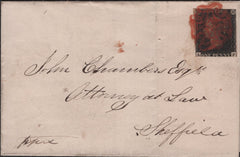 John Chambers Esqr
Attorney at Law
Sheffield
ONE PENNY